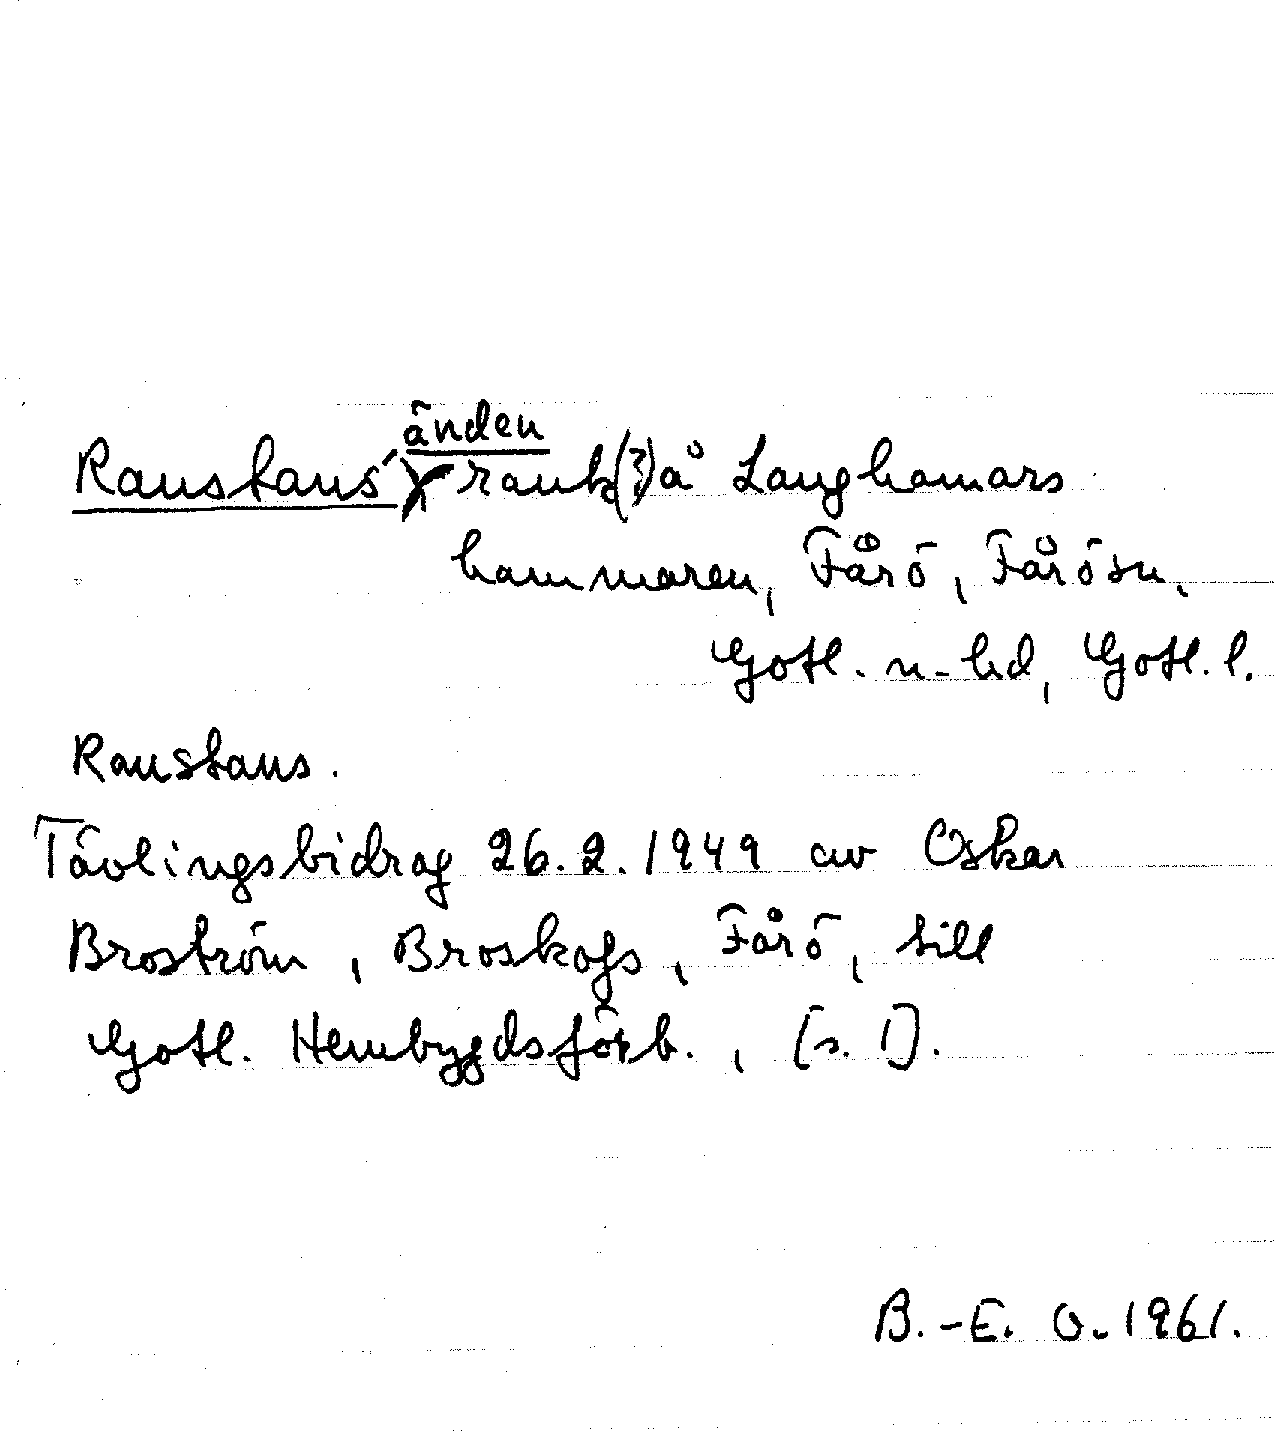 änden
Raustaus´ rauk(?) å Langhamars
hammaren, Fårö, Fårösu.
Gotl. n-hd, Gotl. l.
Raustaus.
Tävlingsbidrag 26.2.1949 av Oskar
Broström, Broskogs, Fårö, till
Gotl. Hembygdsförb., [s. 1].
B.-E. O. 1961.